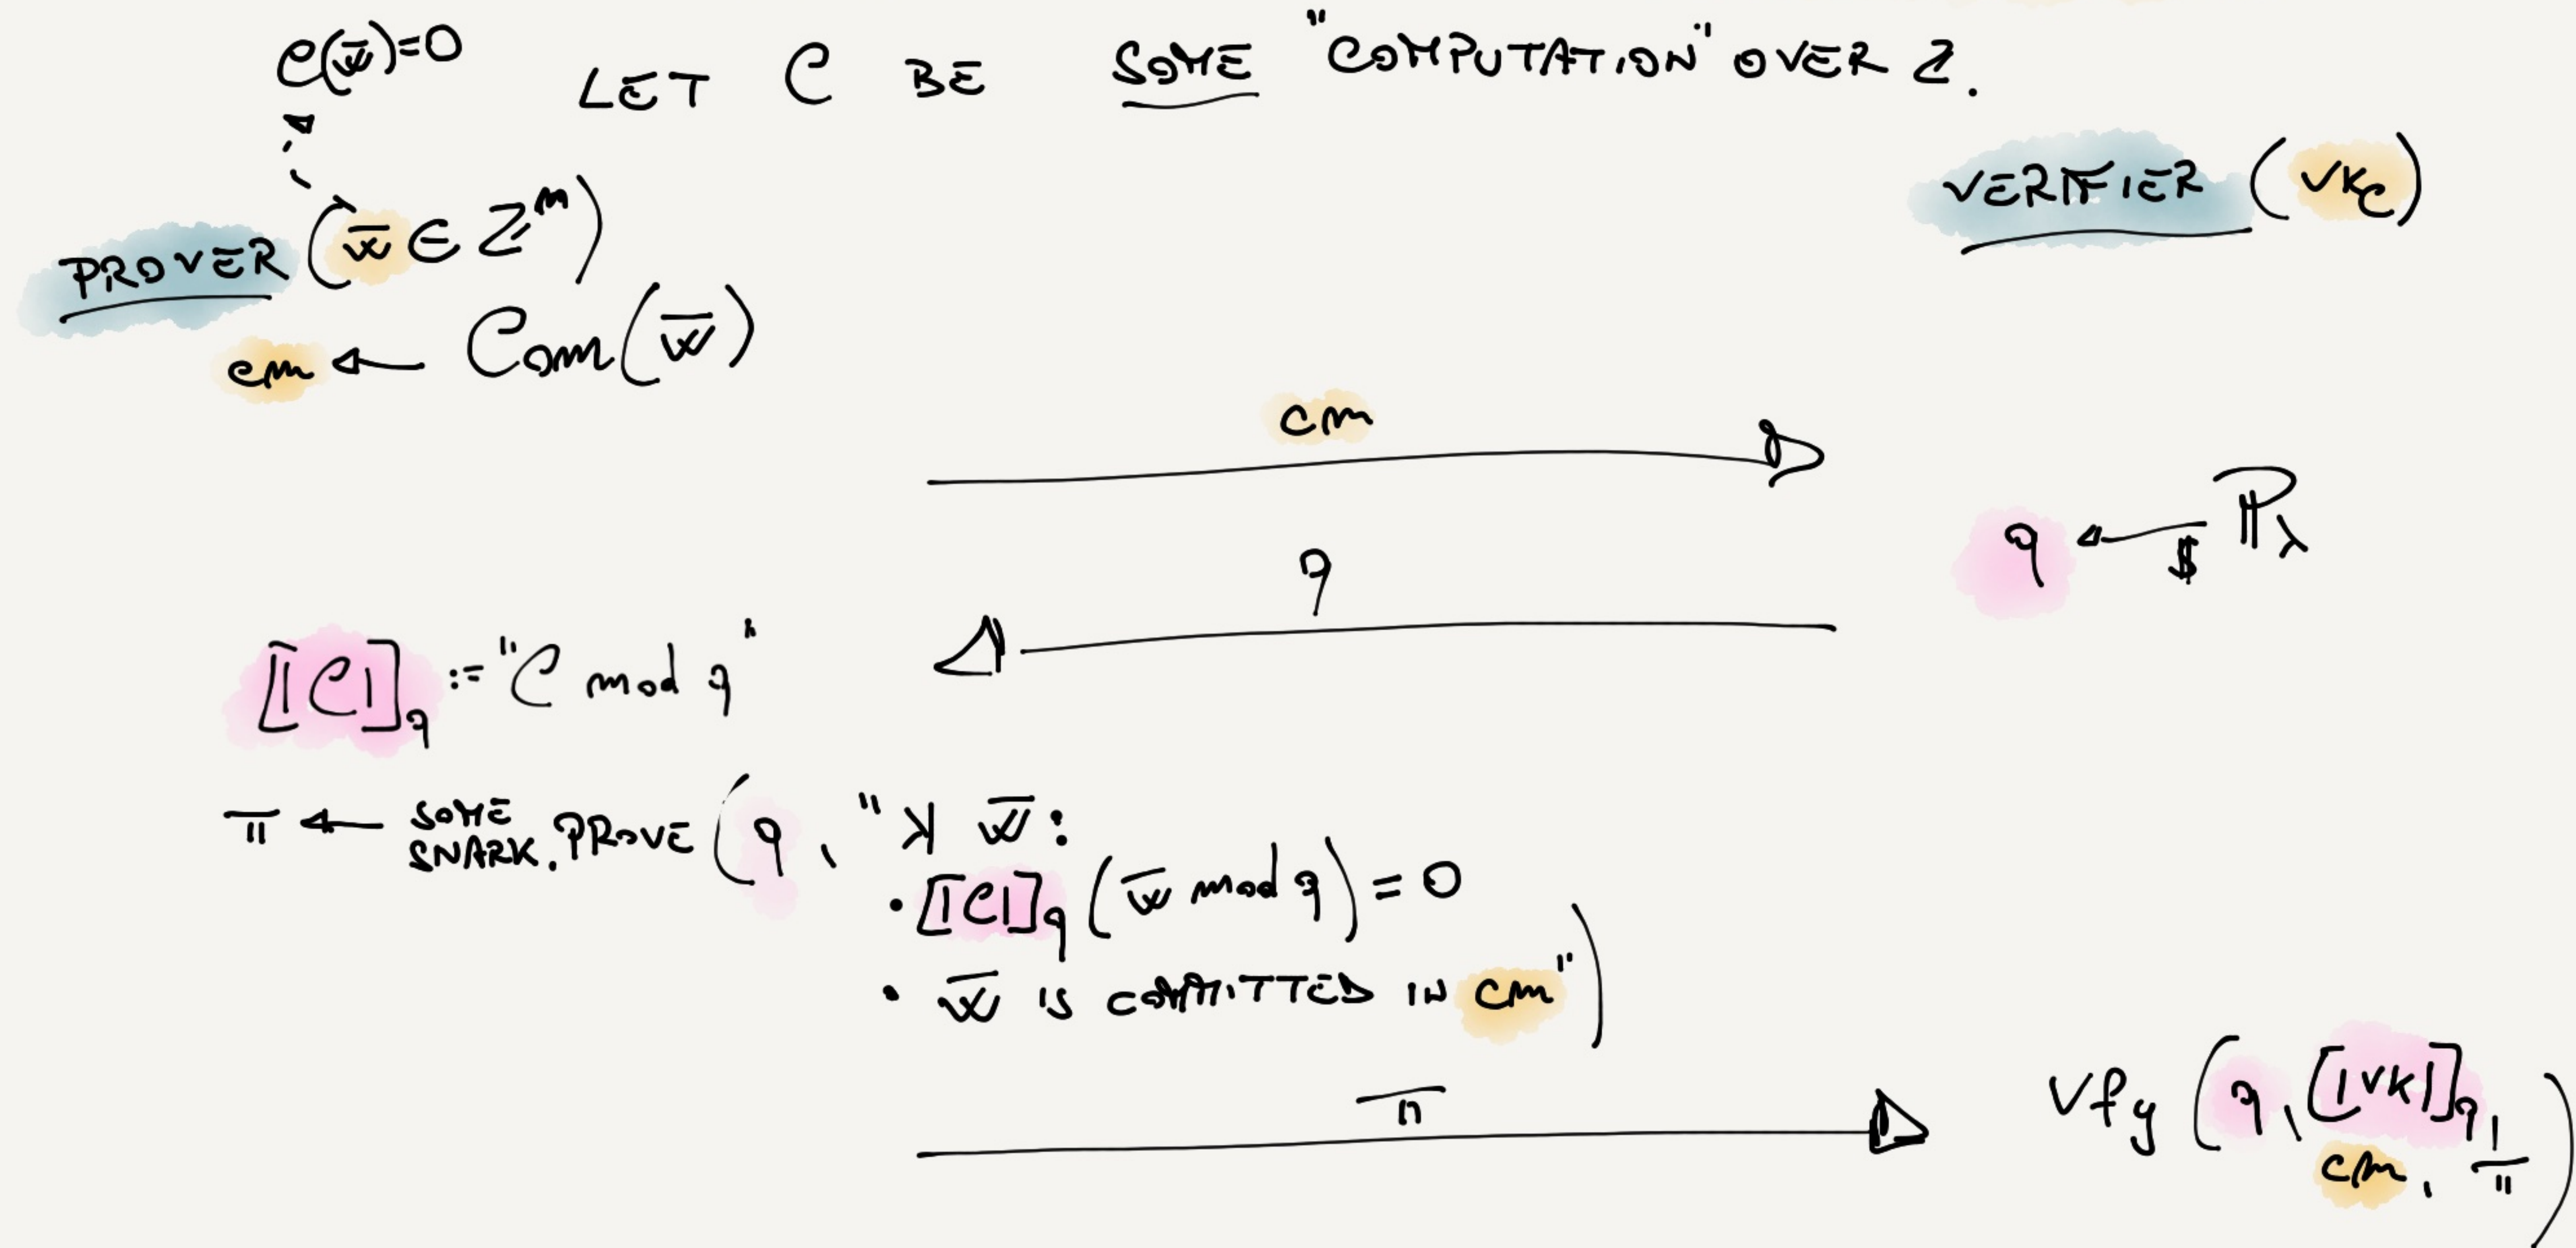 C(w̄)=0
LET C BE SOME "COMPUTATION" OVER Z.
VERIFIER (vk_C)
PROVER (w̄ ∈ Z^m)
cm ← Com(w̄)
cm
q ←$ ℙ_λ
q
⟦C⟧_q := "C mod q"
π ← SOME SNARK.PROVE (q, "K w̄:
• ⟦C⟧_q (w̄ mod q) = 0
• w̄ IS COMMITTED IN cm")
π
Vfy (q, ⟦vk⟧_q,
cm, π)